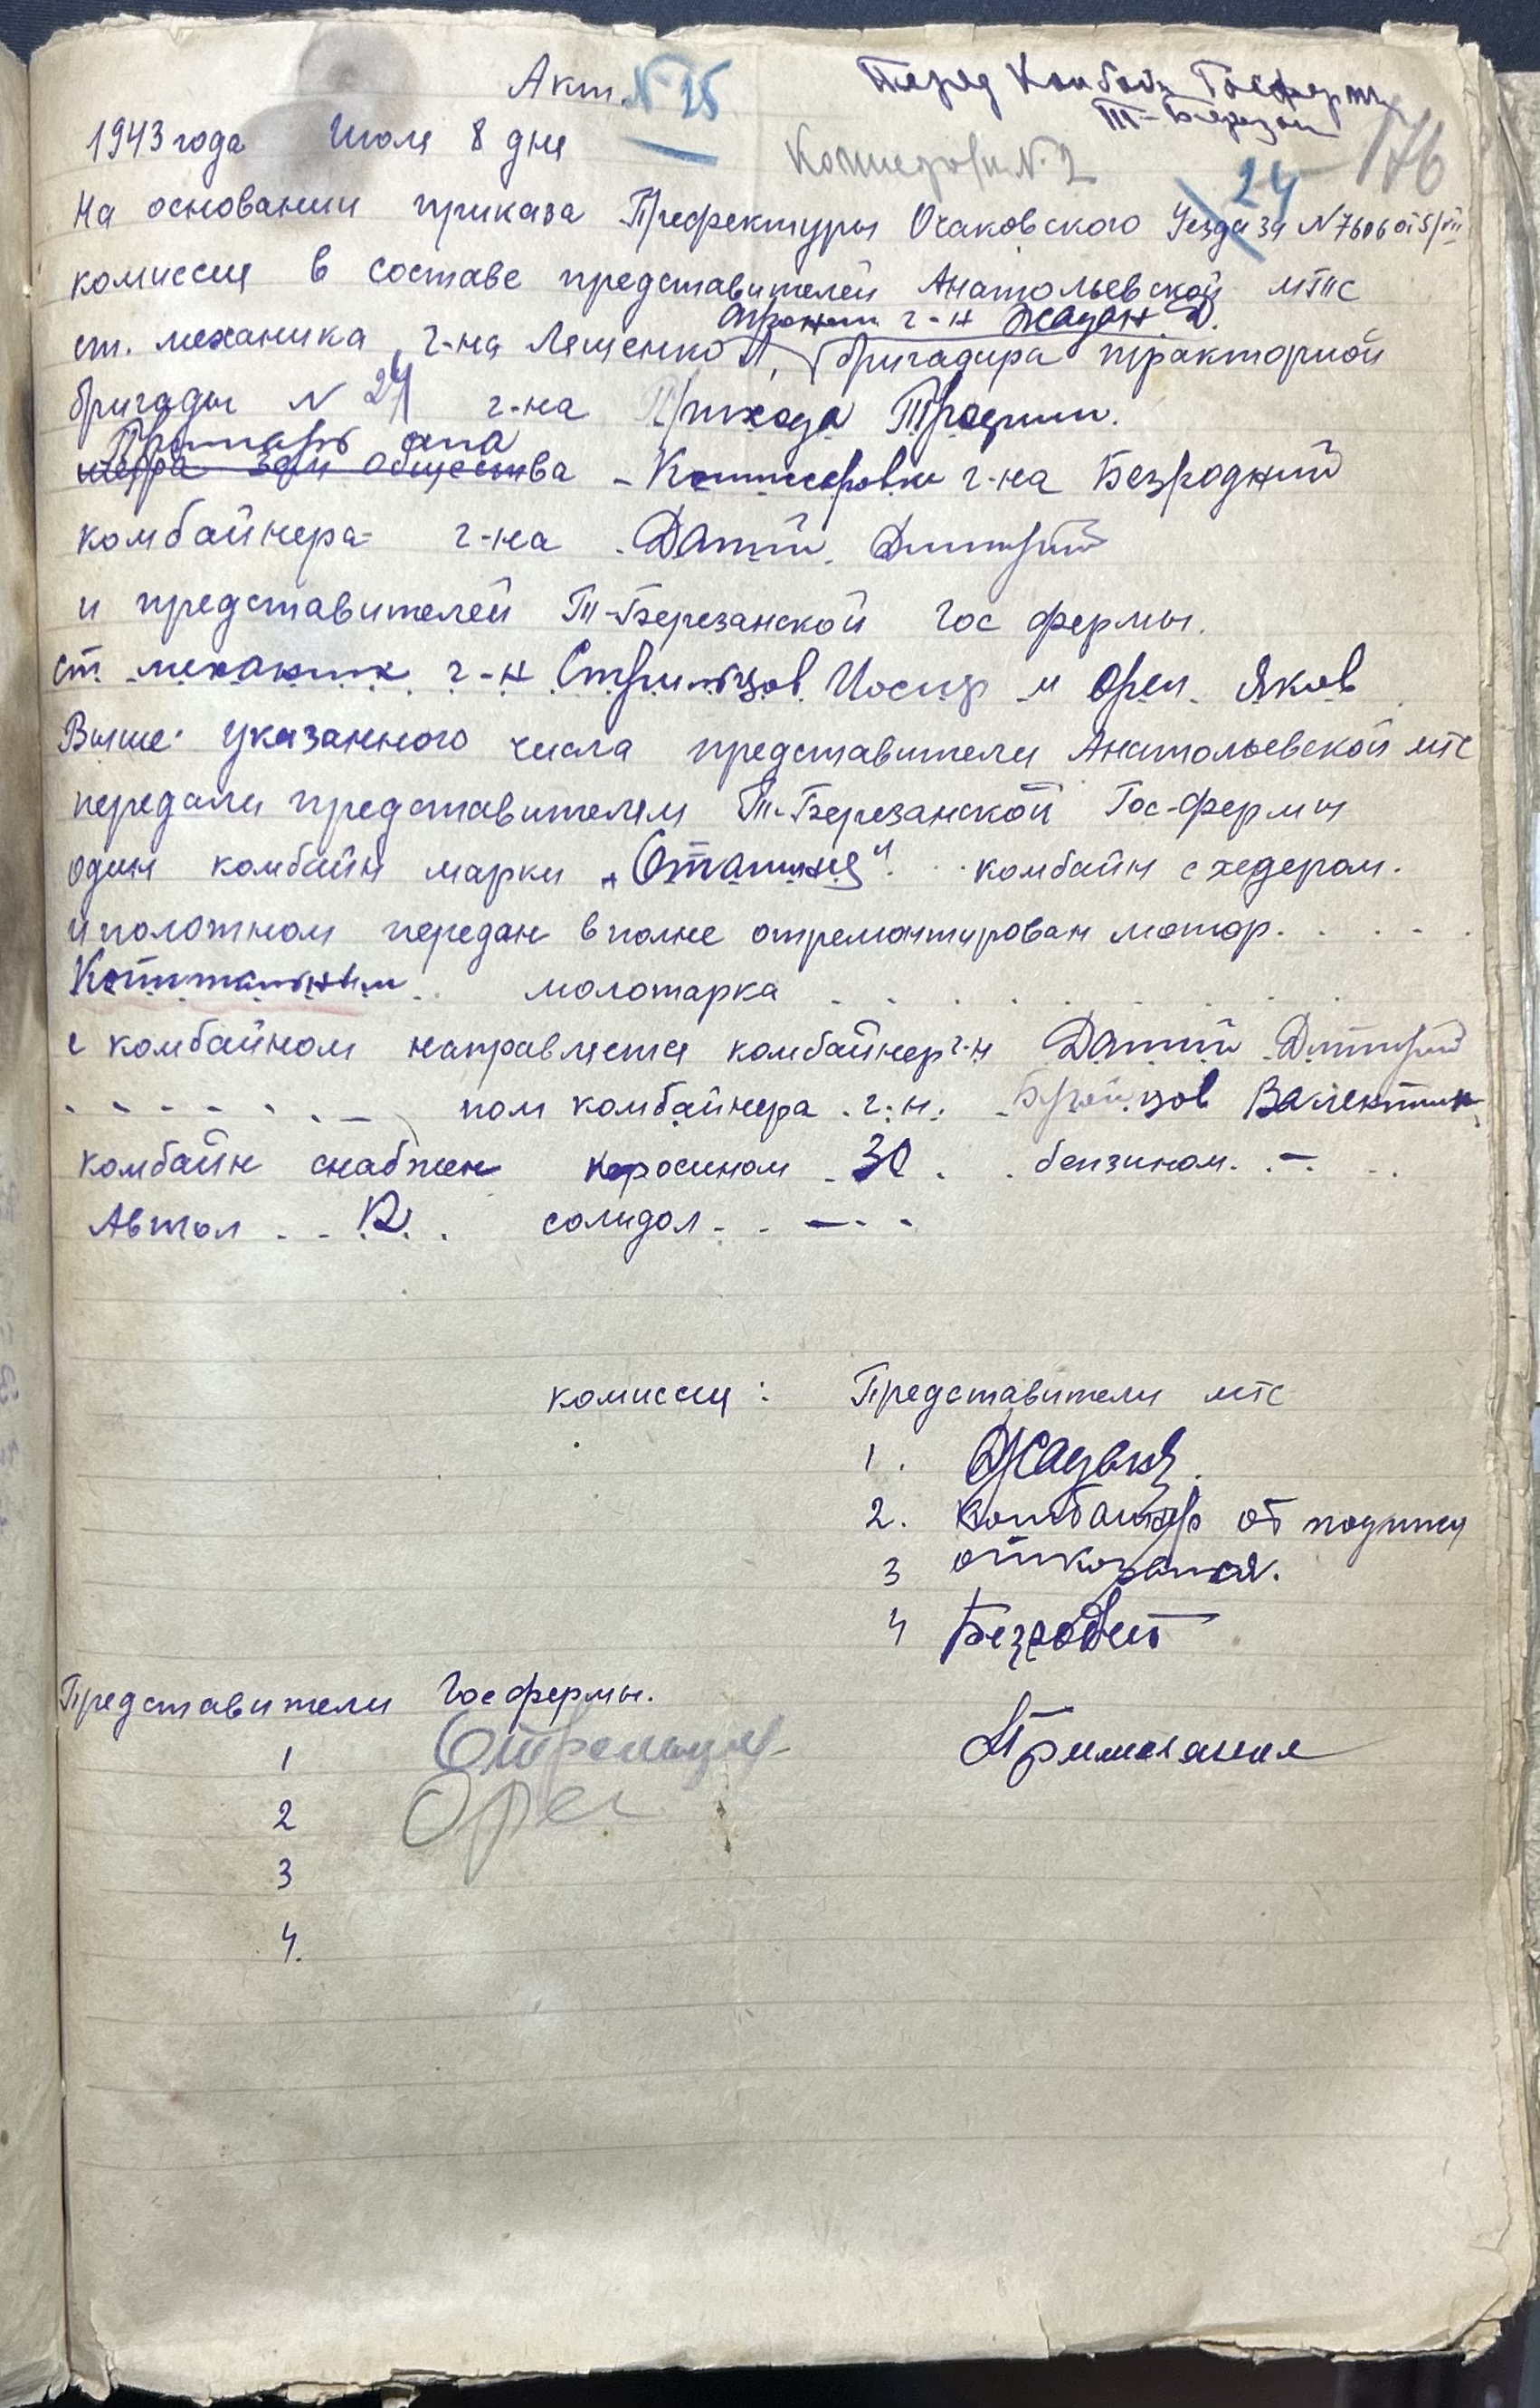 Акт. № 25
Перед Комбайн Госферми
Т-Березан
1943 года Июля 8 дня
176
24
На основании приказа Префектуры Очаковского Уезда за N 7606 от 5/VII
комиссия в составе представителей Анатольевской МТС
агроном г-н Жадан Д.
ст. механика г-на Лященко Л, бригадира тракторной
бригады N 24 г-на Прихода Трофим.
Примарь ста
общества - г-на Безродний
комбайнера- г-на Датий Дмитрий
и представителей Т-Березанской Гос фермы.
ст. механик г-н Стрильцов Иосиф и Орел Яков
Выше указанного числа представители Анатольевской мтс
передали представителям Т-Березанской Гос-фермы
один комбайн марки „Сталинец" комбайн с хедером.
и полотном передан вполне отремонтирован мотор. . . . .
Капитальним . . молотарка . . . . . . . .
с комбайном направляется комбайнер г-н Датий Дмитрий
пом комбайнера г.н. Валентин
комбайн снабжен керосином 30 . . бензином. . - . .
Автол . . 12 . солидол - . — . .
комиссия : Представители мтс
1.
2. Комбайнер от подписи
3 отказался.
4 Безродний
Представители Госфермы.
1 Стрельцов
Примечания
2 Орел
3
4.